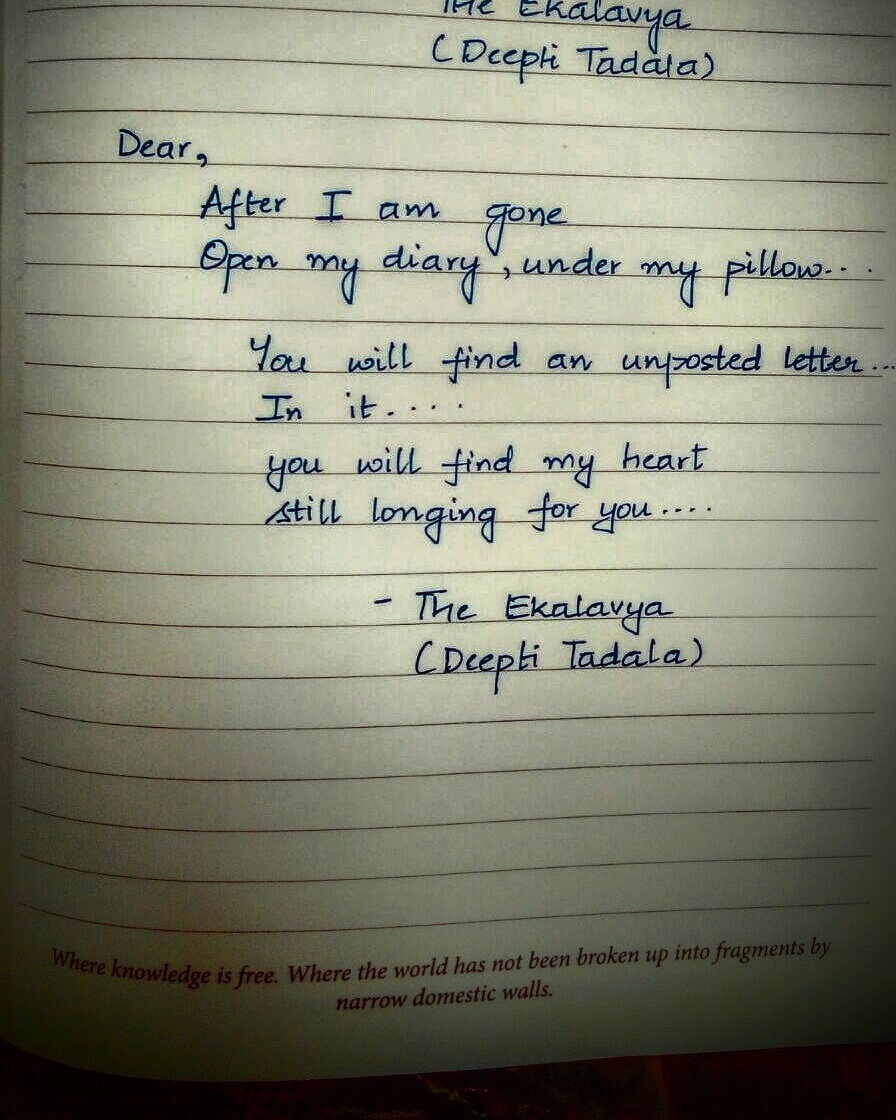 The Ekalavya
(Deepti Tadala)
Dear,
After I am gone
Open my diary, under my pillow...
You will find an unposted letter...
In it....
you will find my heart
still longing for you....
- The Ekalavya
(Deepti Tadala)
Where knowledge is free. Where the world has not been broken up into fragments by
narrow domestic walls.